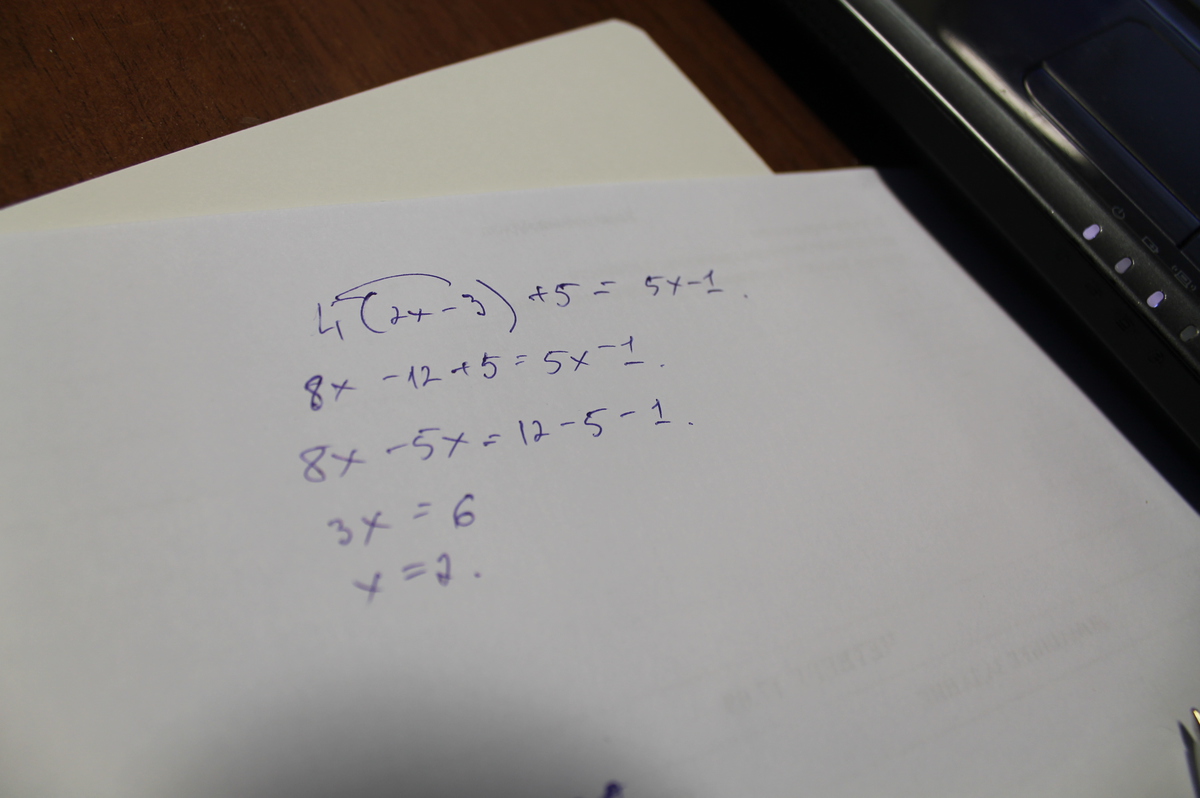 4(2x-3)+5= 5x-1.
8x -12+5=5x-1.
8x -5x=12-5-1.
3x = 6
x=2.